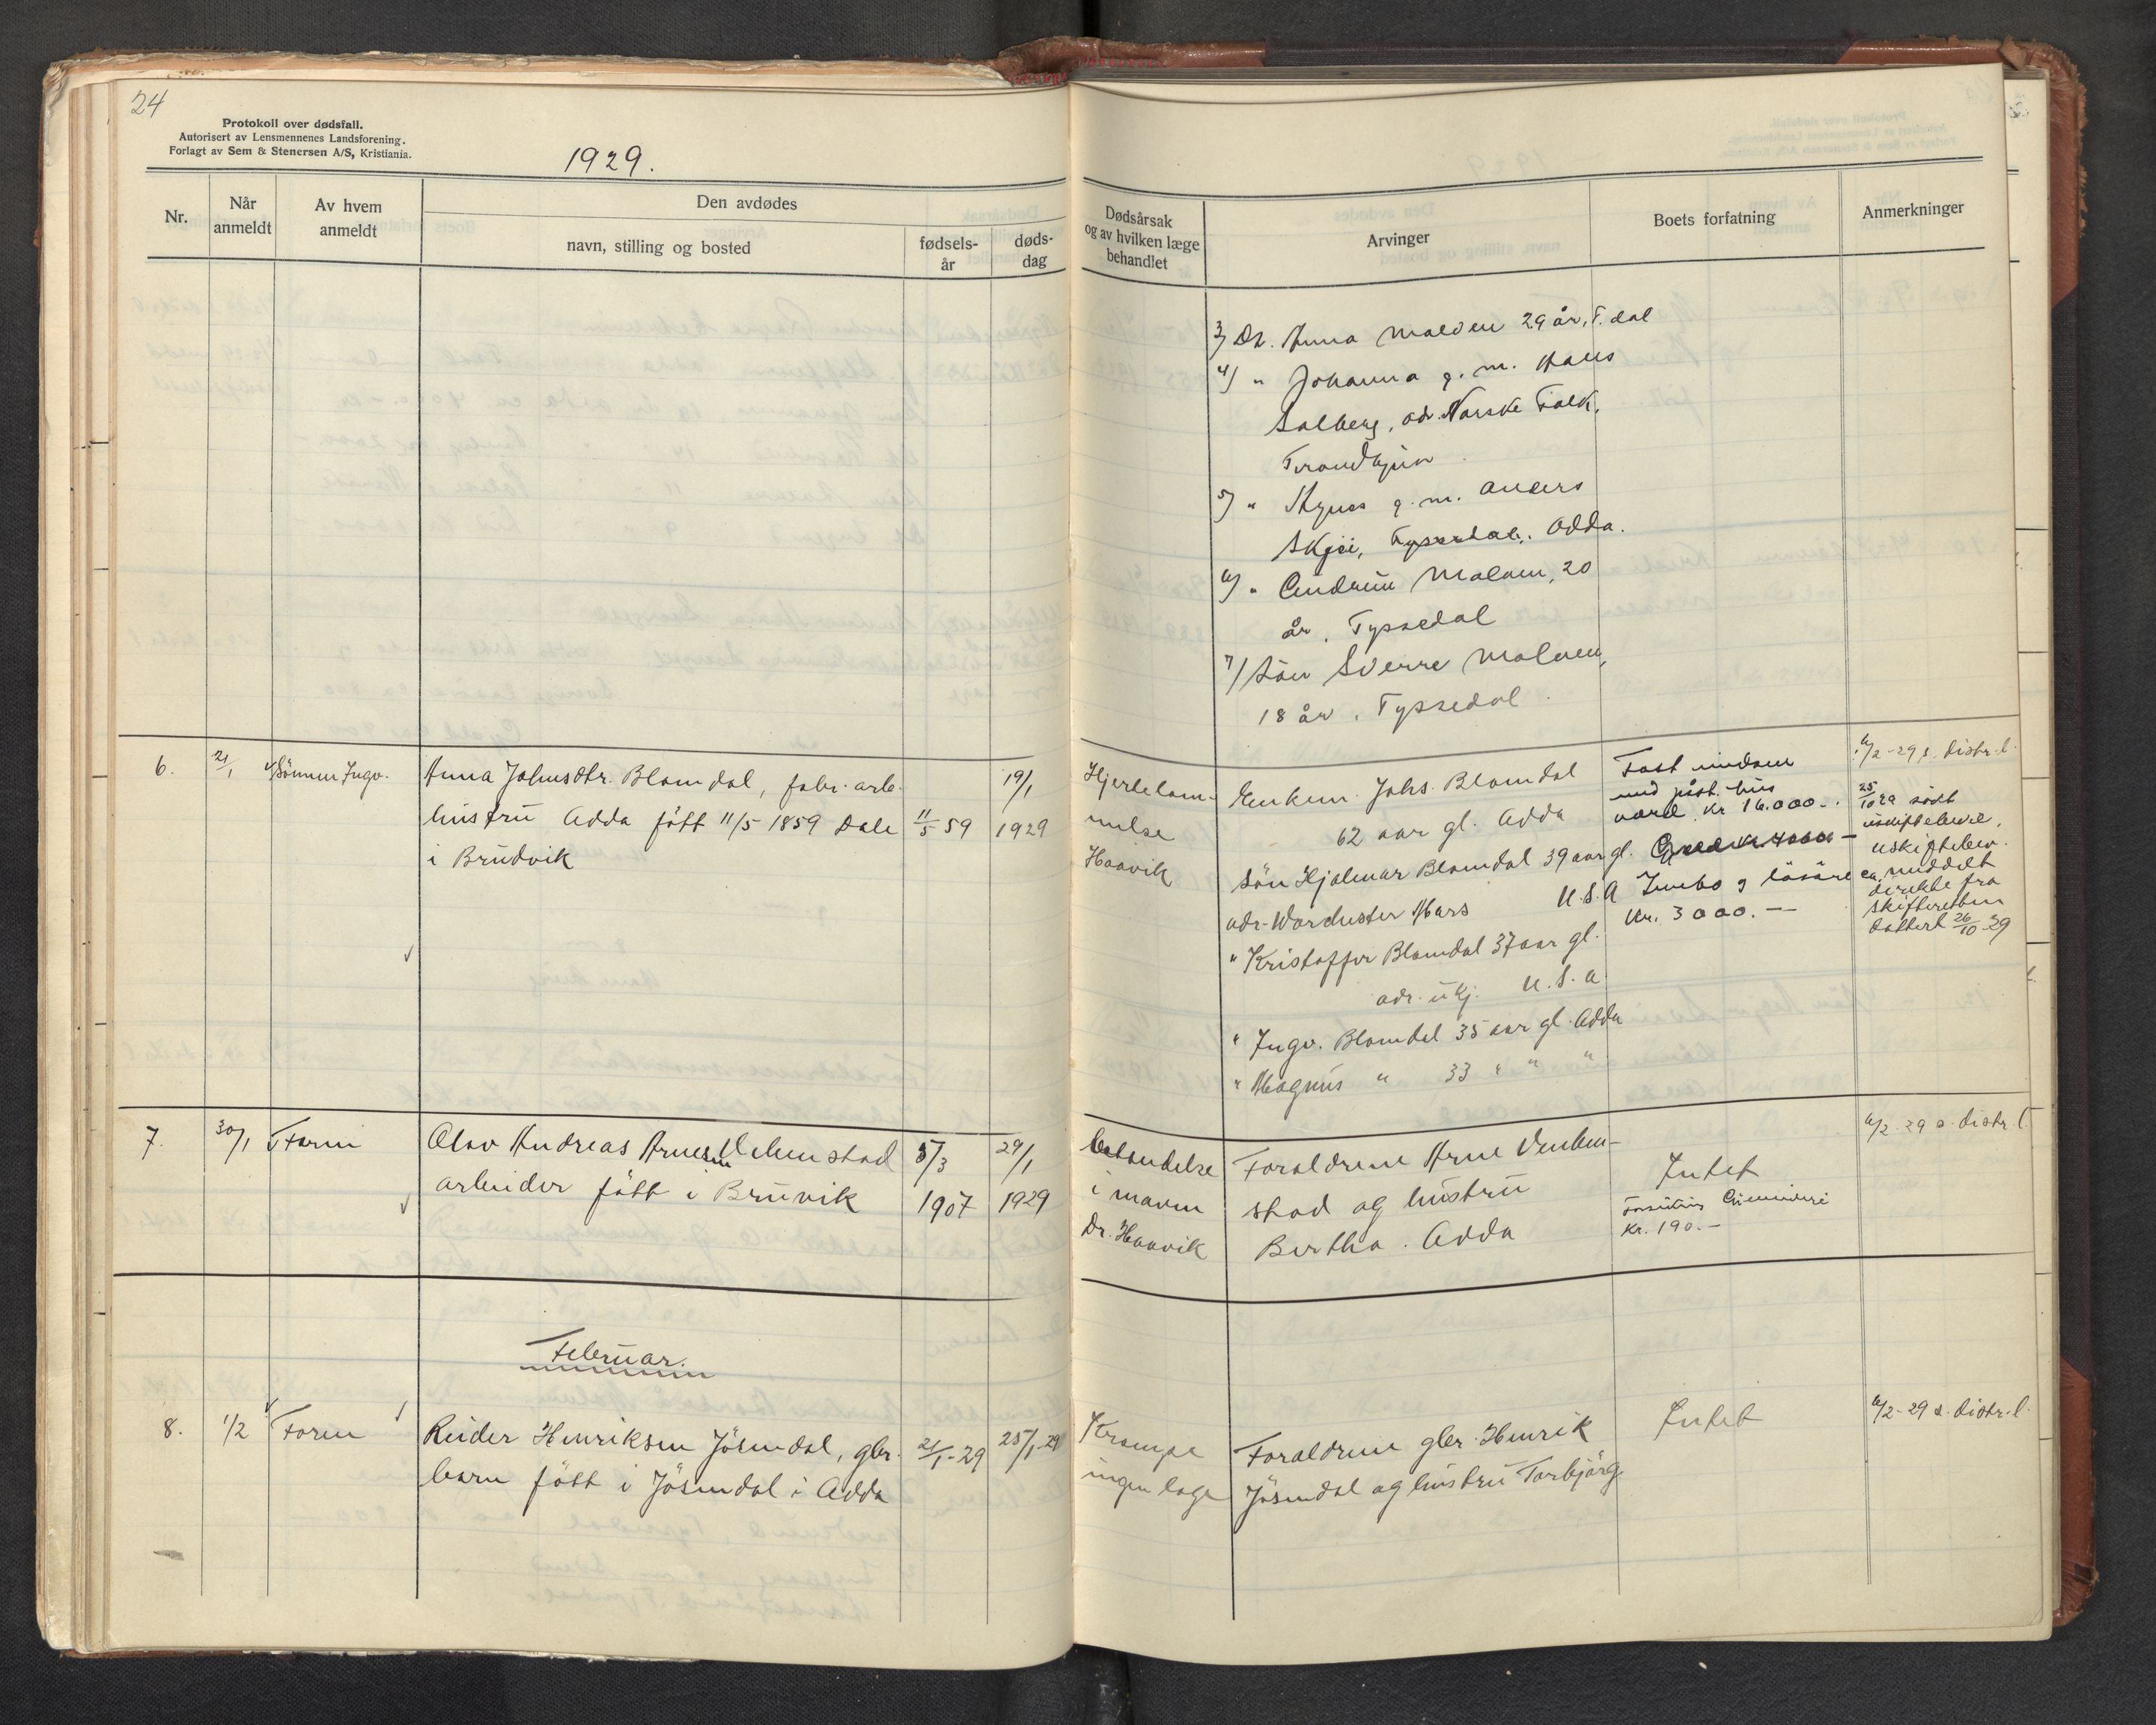 24
Protokoll over dødsfall.
Autorisert av Lensmennenes Landsforening.
Forlagt av Sem & Stenersen A/S, Kristiania.
1929.
Nr.
Når anmeldt
Av hvem anmeldt
Den avdødes
navn, stilling og bosted
fødsels-år
døds-dag
Dødsårsak og av hvilken læge behandlet
Arvinger
Boets forfatning
Anmerkninger
3) Dt. Anna Malven 29 år, T.dal
4) " Johanna g. m. Hans
Solberg, adr. Norske Folk,
Trondhjem
5) " g. m. Anders
Skjei, Tyssedal, Odda.
6) " Gudrun Malven, 20
år, Tyssedal
7) Sön Sverre Malven,
18 år, Tyssedal.
6.
21/1
Sönnen Ingv.
Anna Johnsdtr. Blomdal, fabr. arb.
hustru Odda født 11/5 1859 Dale
i Brudvik
11/5 59
19/1
1929
Hjertelam-
melse
Haavik
Enkem. Johs. Blomdal
62 aar gl. Odda
Sön Hjalmar Blomdal 39 aar gl.
adr. Worchester Mass U.S.A
" Kristoffer Blomdal 37 aar gl.
adr. ukj. U.S.A
" Ingv. Blomdal 35 aar gl. Odda
" Magnus " 33 " " "
Fast eiendom
med påst. hus
verd. kr 16.000.-
Gjeld kr 4000 -
Innbo og lösöre ca.
kr. 3000.-
6/2-29 s. distr.l.
25/10 29 södt
uskiftebevil.
uskiftebev.
meddelt
direkte fra
skifteretten
dattert 26/10-29
7.
30/1
Faren
Olav Andreas Arnesen Vehmstad
arbeider født i Bruvik
5/3
1907
29/1
1929
Betendelse
i maven
Dr. Haavik
Foreldrene Arne Venhem-
stad og hustru
Bertha. Odda
Intet
kr. 190.-
6/2-29 s. distr.l.
Februar.
8.
1/2
Faren
Reidar Henriksen Jösendal, gbr.
barn født i Jösendal i Odda
21/1-29
25/1-29
Krampe
ingen læge
Foreldrene gbr. Henrik
Jösendal og hustru Torbjörg
Intet
6/2-29 s. distr.l.